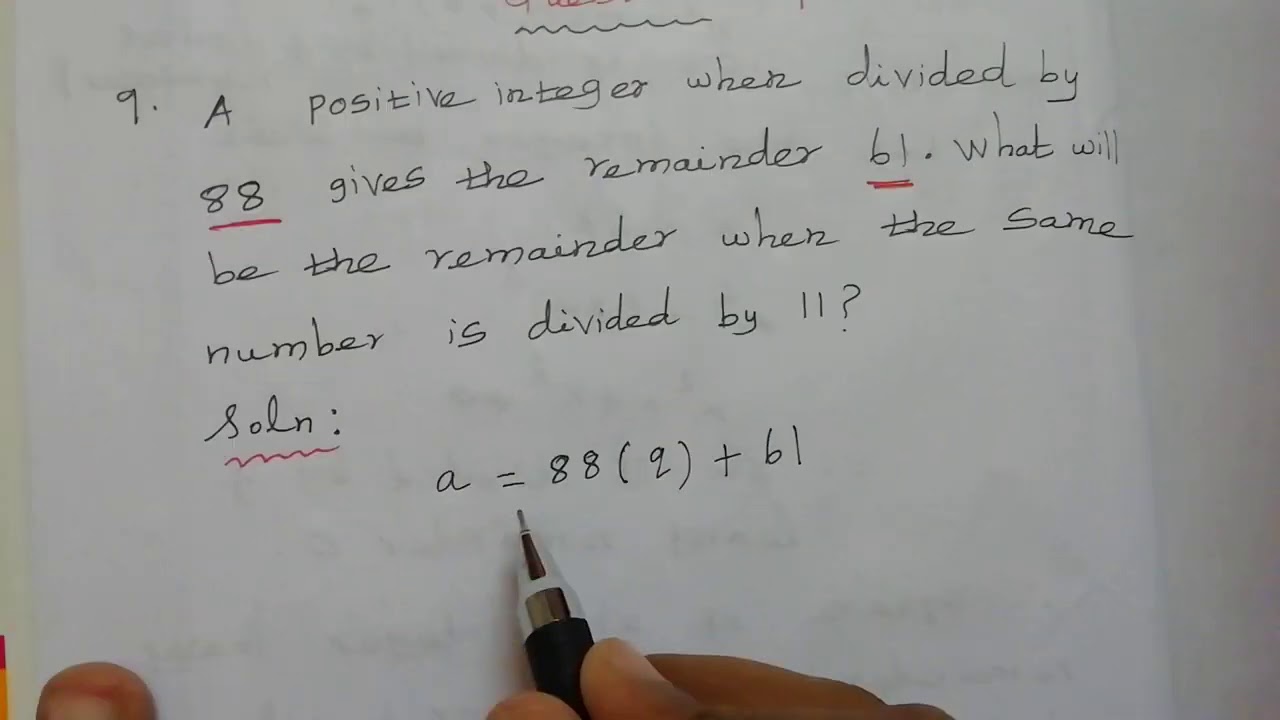 9. A positive integer when divided by
88 gives the remainder 61. What will
be the remainder when the same
number is divided by 11?
Soln:
a = 88(q) + 61